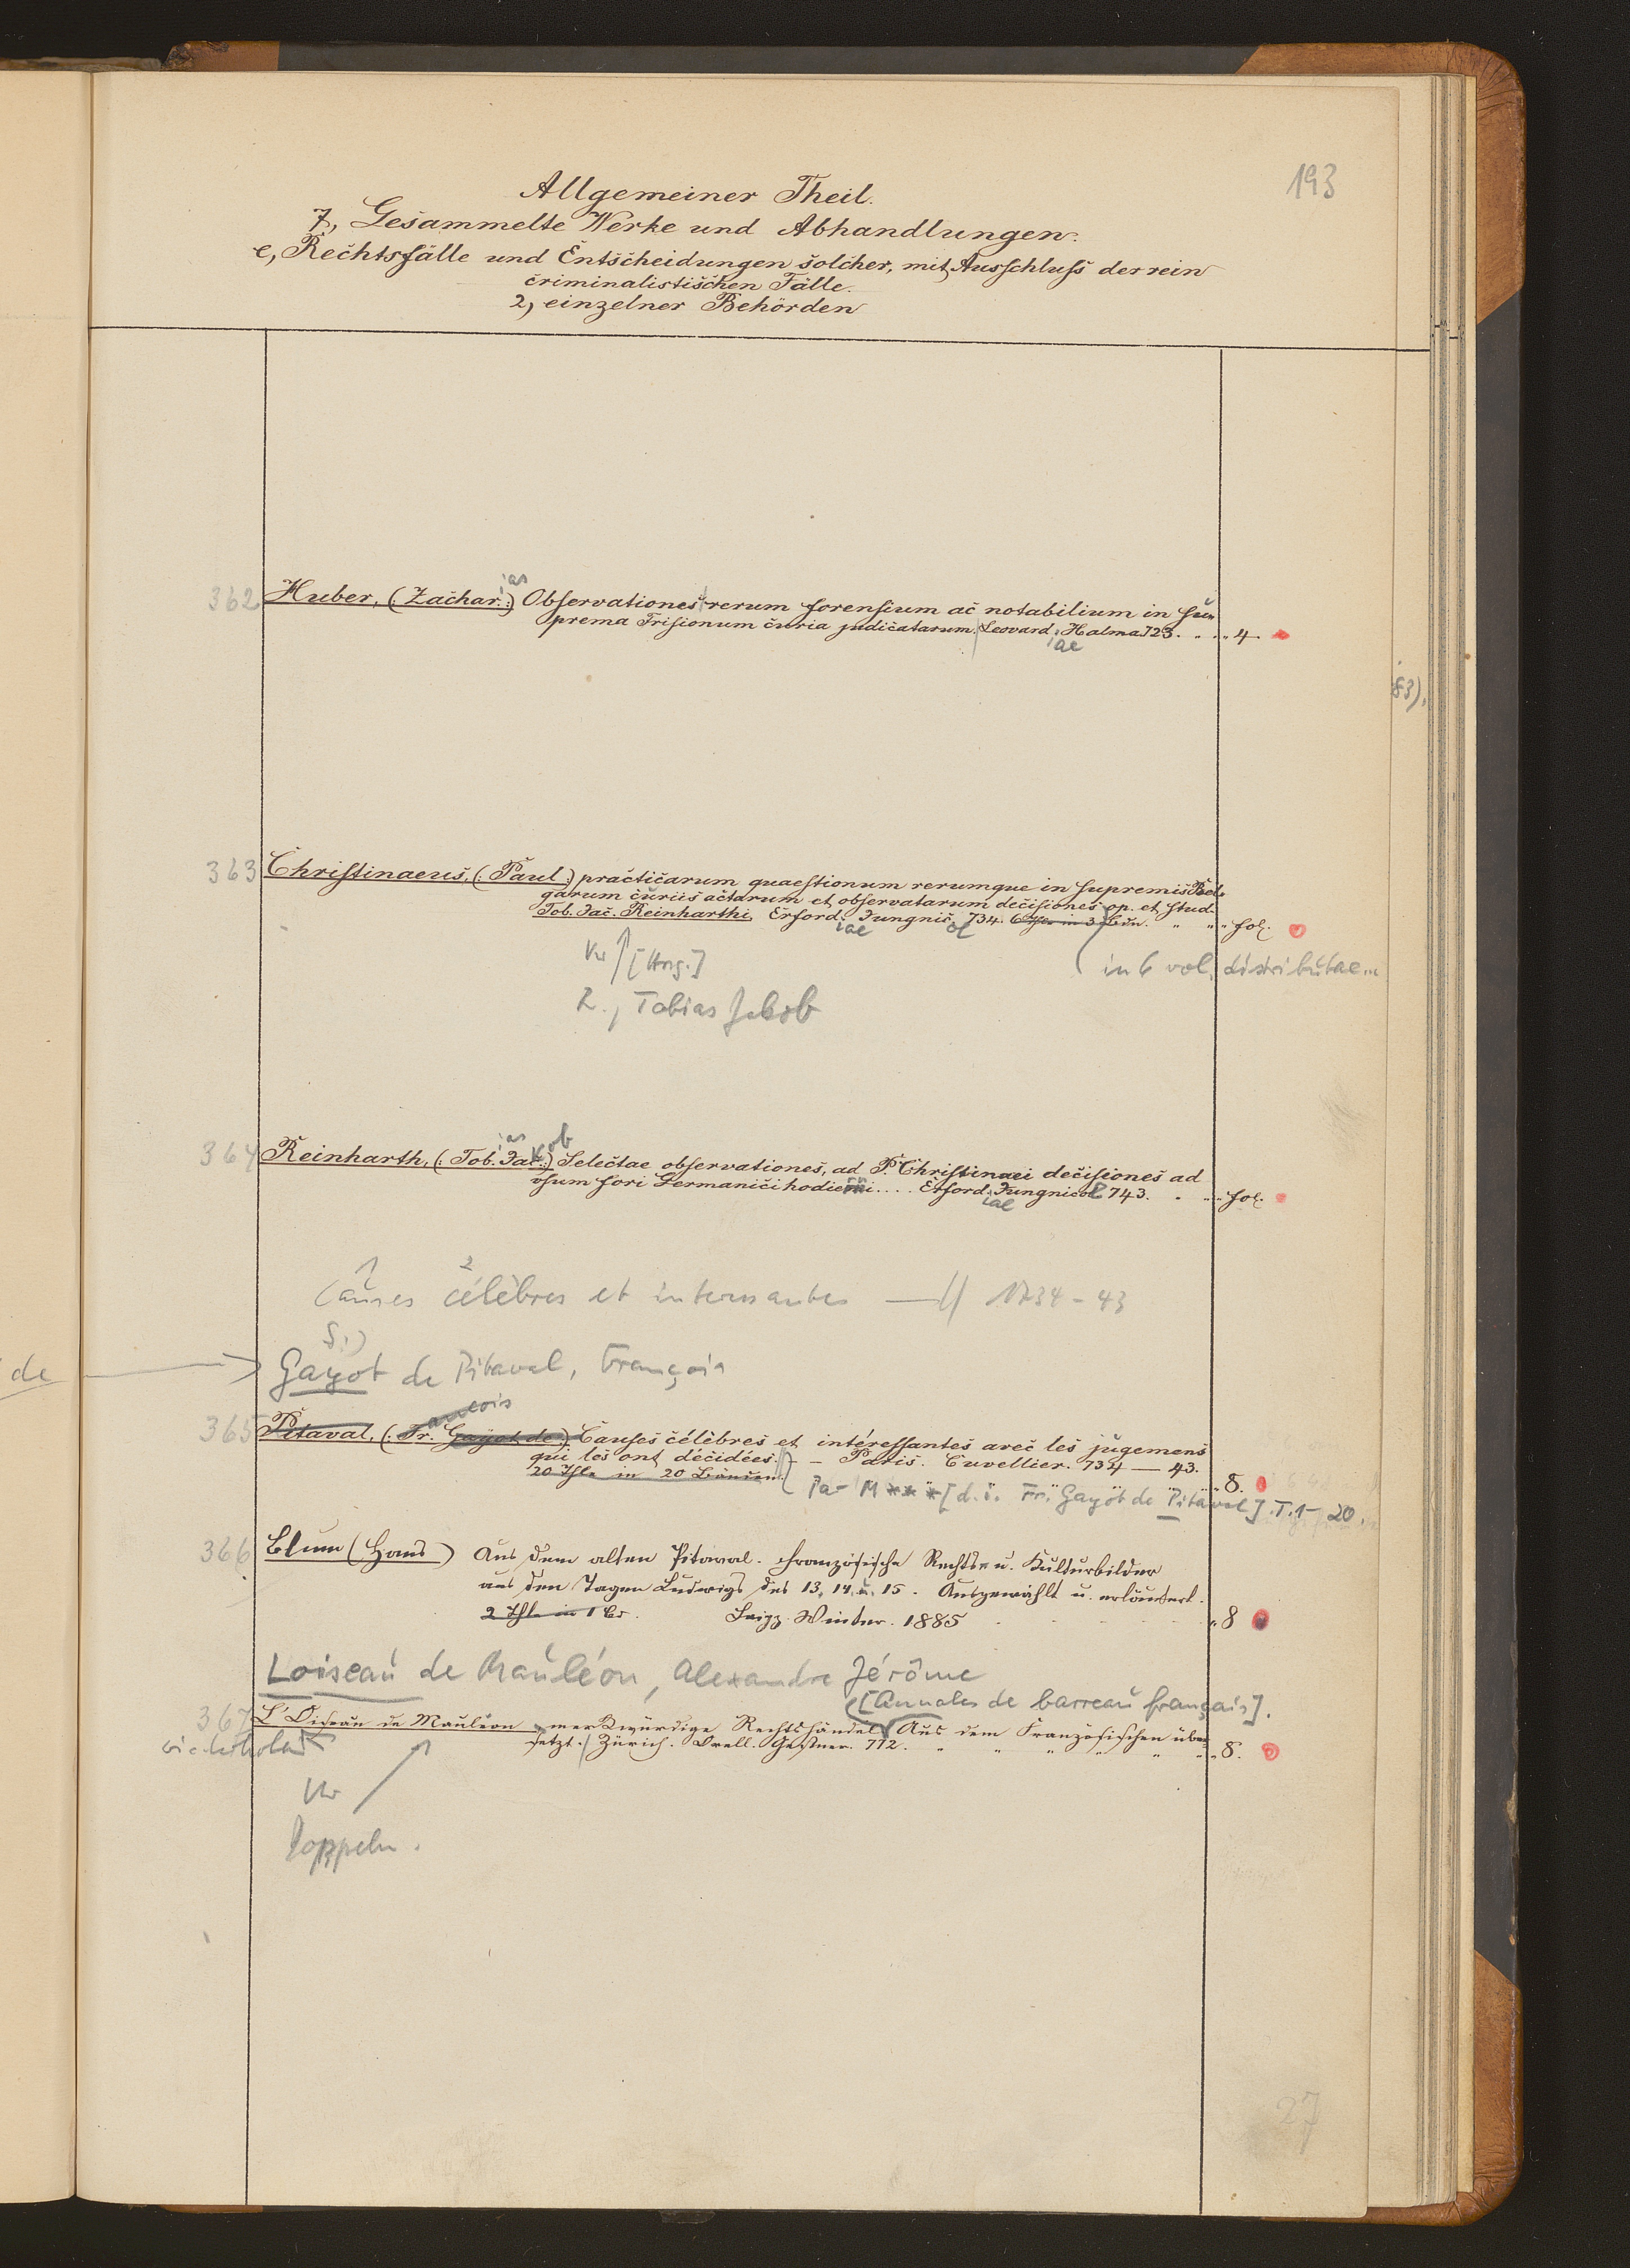 193
Allgemeiner Theil.
7, Gesammelte Werke und Abhandlungen.
e, Rechtsfälle und Entscheidungen solcher, mit Ausschluss der rein
criminalistischen Fälle.
2, einzelner Behörden
ias
362 Huber, (: Zachar. :) Observationes rerum forensium ac notabilium in su-
prema Frisionum curia judicatarum. Leovard. Halma 723. " " " 4.
iae
83),
363 Christinaeus, (: Paul :) practicarum quaestionum rerumque in supremis Bel-
garum curiis actarum et observatarum decisiones op. et stud.
Tob. Jac. Reinharthi. Erford. Jungnic. 734. 6 Thle in 3 Bdn. " " " fol.
iae ol
Vw [Hrsg.] in 6 vol. distributae
R., Tobias Jakob
ias ob
364 Reinharth, (: Tob. Jak. :) Selectae observationes, ad P. Christinaei decisiones ad
usum fori Germanici hodierni.... Erford. Jungnicol 743. " " " fol.
iae
1 2
Causes célèbres et interessantes — // 1734-43
S:)
de → Gayot de Pitaval, François
ancois
365 Pitaval, (: Fr. Gayot de :) Causes célèbres et intéressantes avec les jugemens
qui les ont décidées. – – Paris. Cuvellier. 734 — 43.
20 Thle in 20 Bänden. " " " 8.
Par M *** [d. i. Fr. Gayot de Pitaval]. T. 1-20.
366 Blum (Hans) Aus dem alten Pitaval. Französische Rechts- u. Kulturbilder
aus den Tagen Ludwigs des 13, 14. u. 15. Ausgewählt u. erläutert.
2 Thle in 1 Bd. Leipz. Winter. 1885 " 8
Loiseau de Mauléon, Alexandre Jérôme
[Annales de barreau français].
367 L'Oiseau de Mauléon merkwürdige Rechtshändel Aus dem Französischen über-
setzt. Zürich. Orell. Gessner. 772. " " " " " " " 8.
Vw
Doppeln.
27